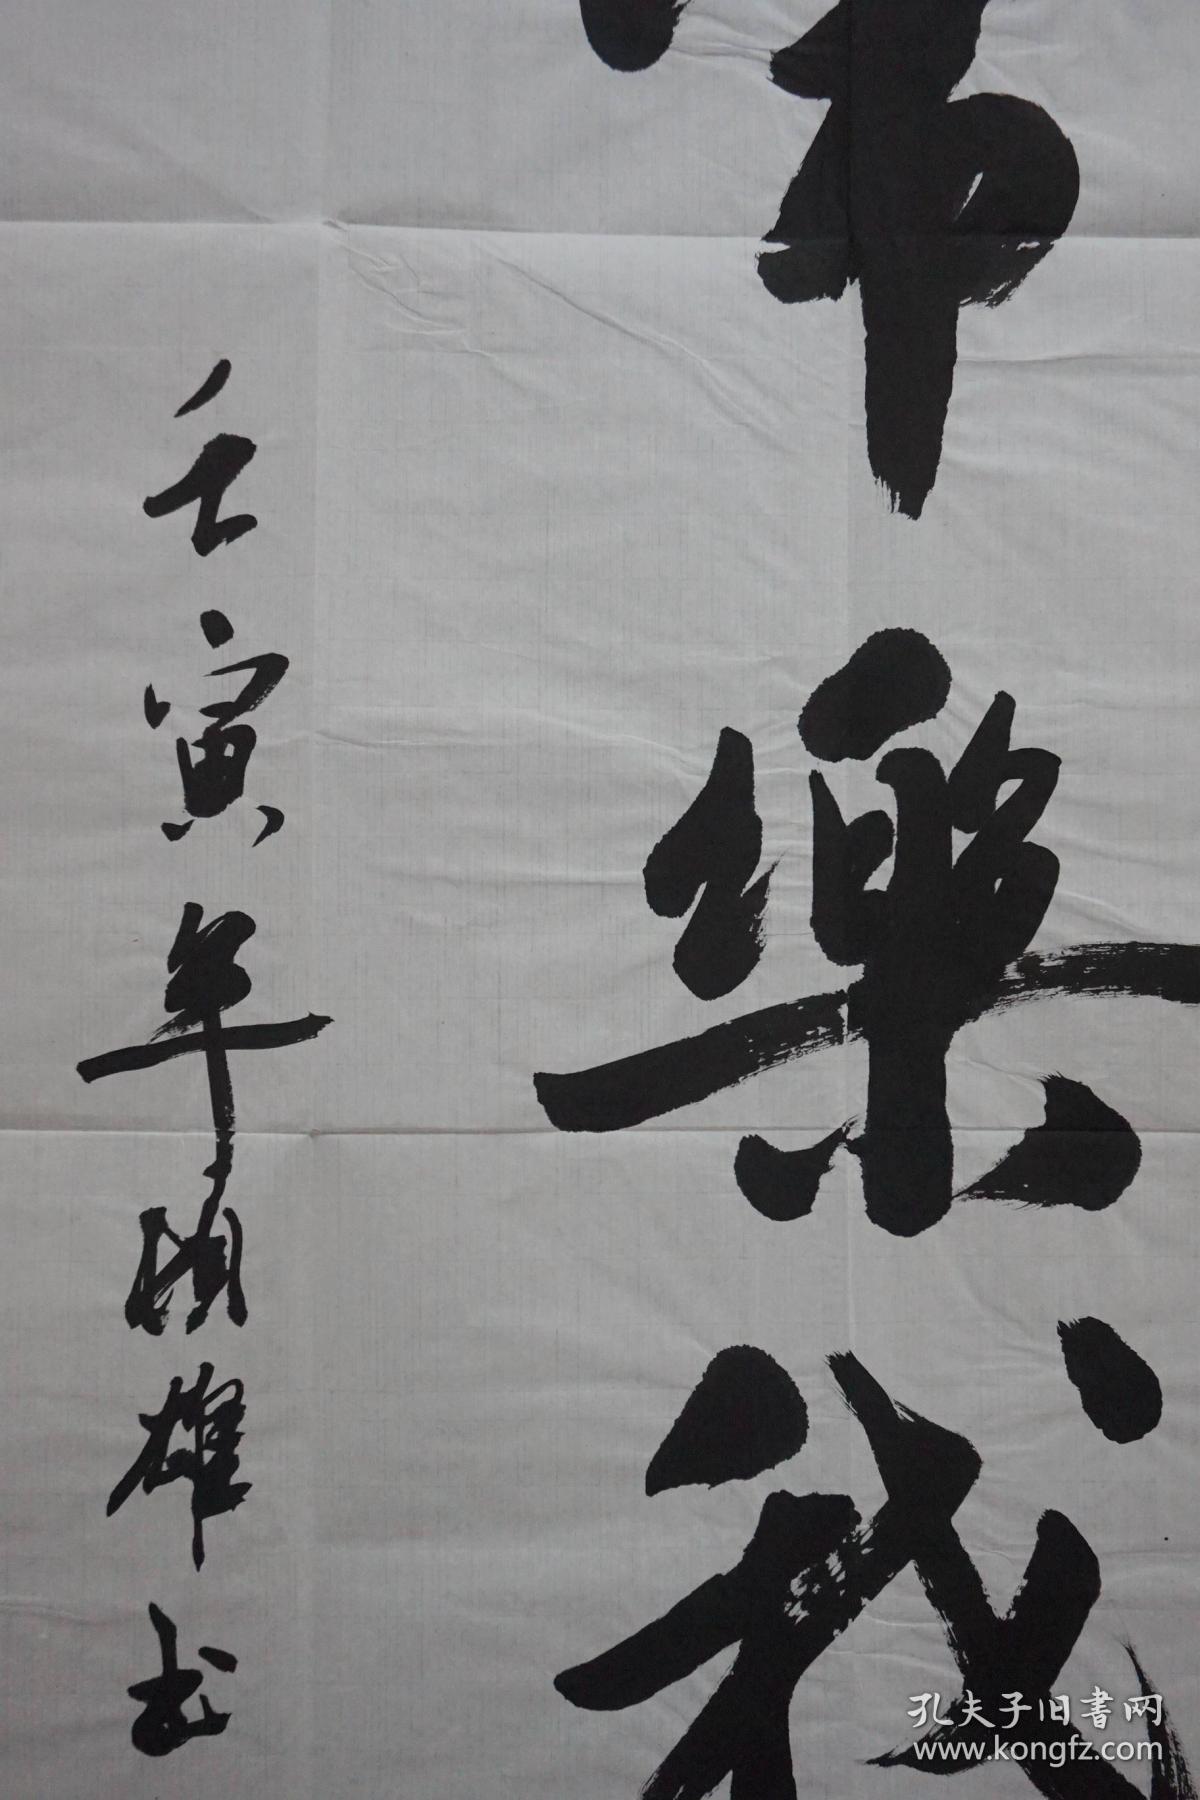 常樂我
壬寅年順雄书
孔夫子旧書网
www.kongfz.com